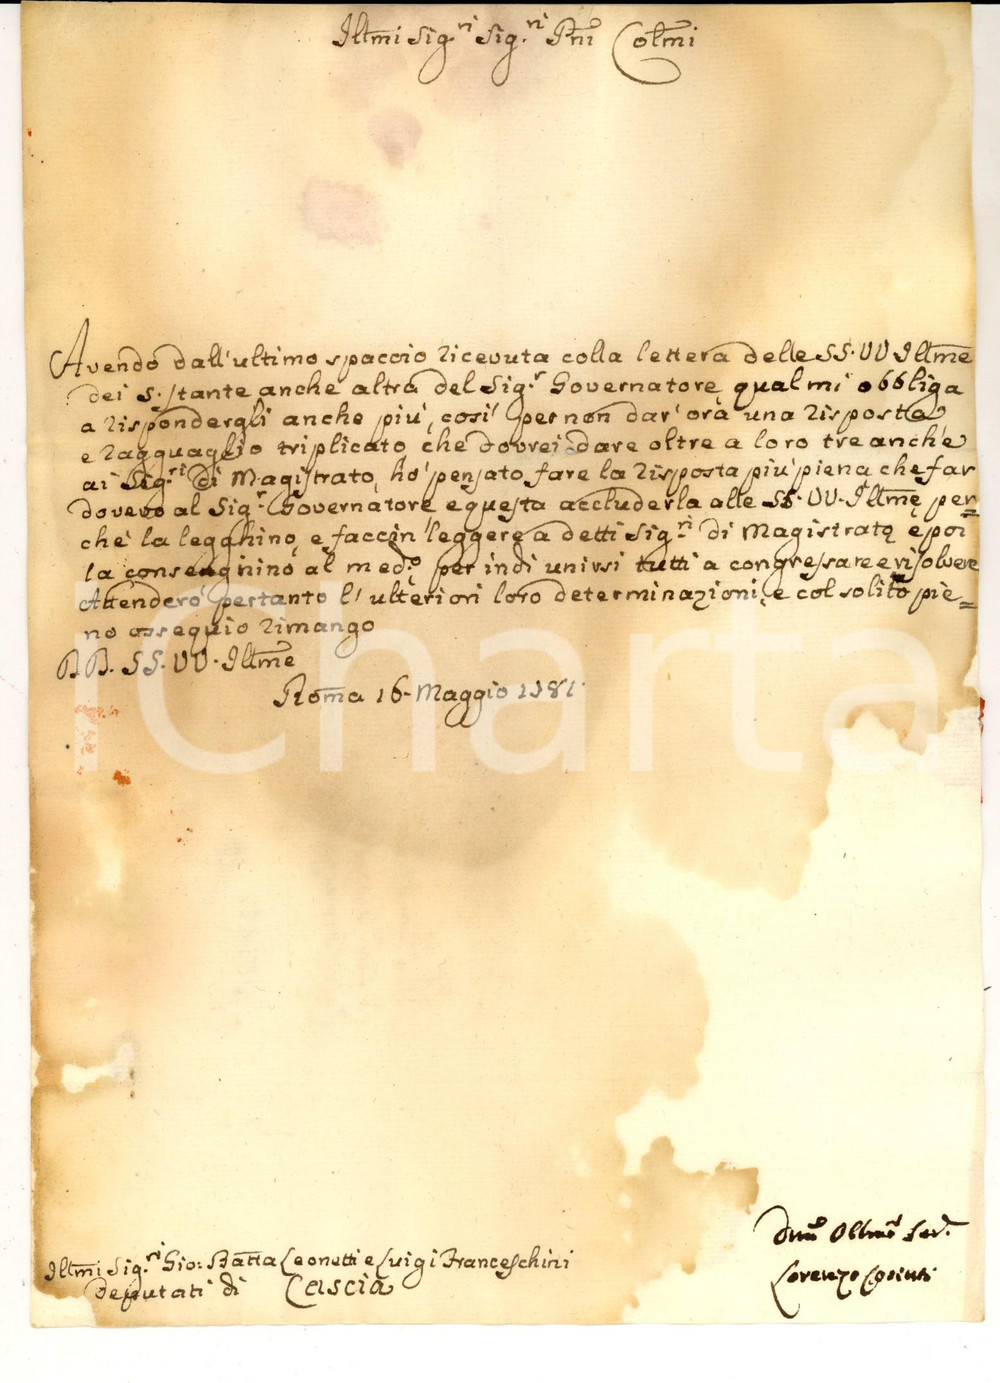 Illmi Sig.ri Sig.ri Pñi Colmi
Avendo dall'ultimo spaccio ricevuta colla lettera delle SS. VV Illme
dei s. stante anche altra del Sig.r Governatore, qual mi obbliga
a rispondergli anche più, così per non dar' ora una risposta
e ragguaglio triplicato, che dovrei dare oltre a loro tre anche
ai Sig.ri di Magistrato, hò pensato fare la risposta più piena che far
dovevo al Sig.r Governatore e questa accluderla alle SS. VV. Illme, per=
che la legghino, e faccin' leggere a detti Sig.ri di Magistrato, e poi
la conseghino al med.o per indi unirsi tutti a congressare e risolvere
Attenderò pertanto l'ulteriori loro determinazioni, e col solito pie=
no ossequio rimango
BB. SS. VV. Illme
Roma 16. Maggio 1781.
iCharta
Dmo Obbmo Ser.
Illmi Sig.ri Gio: Batta Leonetti e Luigi Franceschini
Lorenzo
Deputati di Cascia